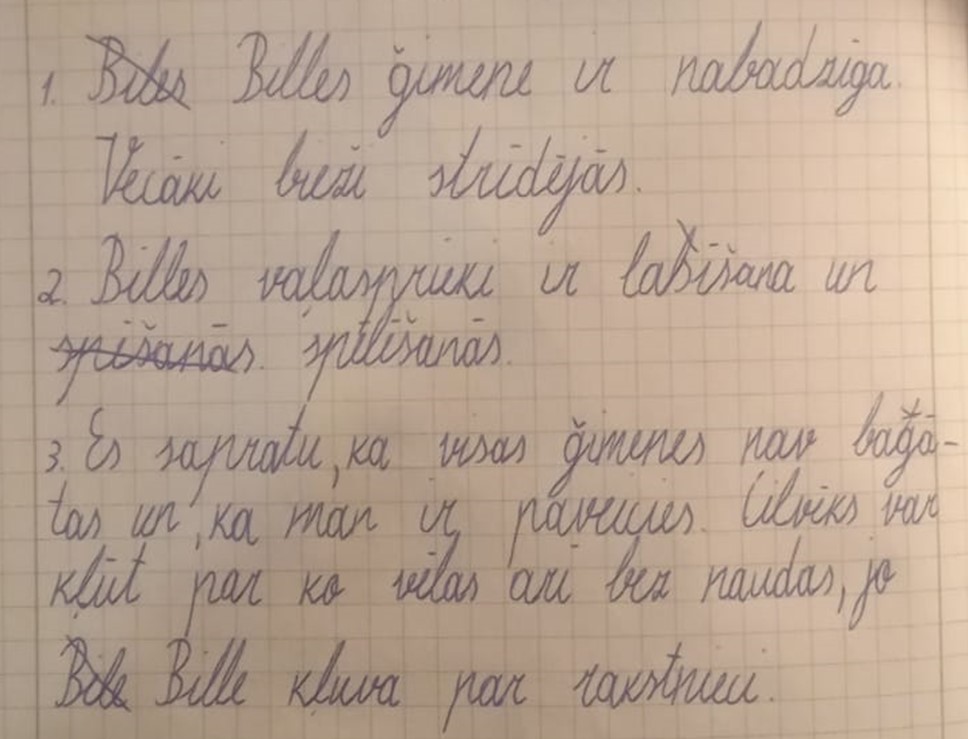 1. Billes ģimene ir nabadziga.
Vecāki bieži strīdējās.
2. Billes vaļasprieki ir lasīšana un
spēlēšanās.
3. Es sapratu, ka visas ģimenes nav bagā-
tas un, ka man ir paveicies. Cilvēks var
kļūt par ko vēlas arī bez naudas, jo
Bille kļuva par rakstnieci.